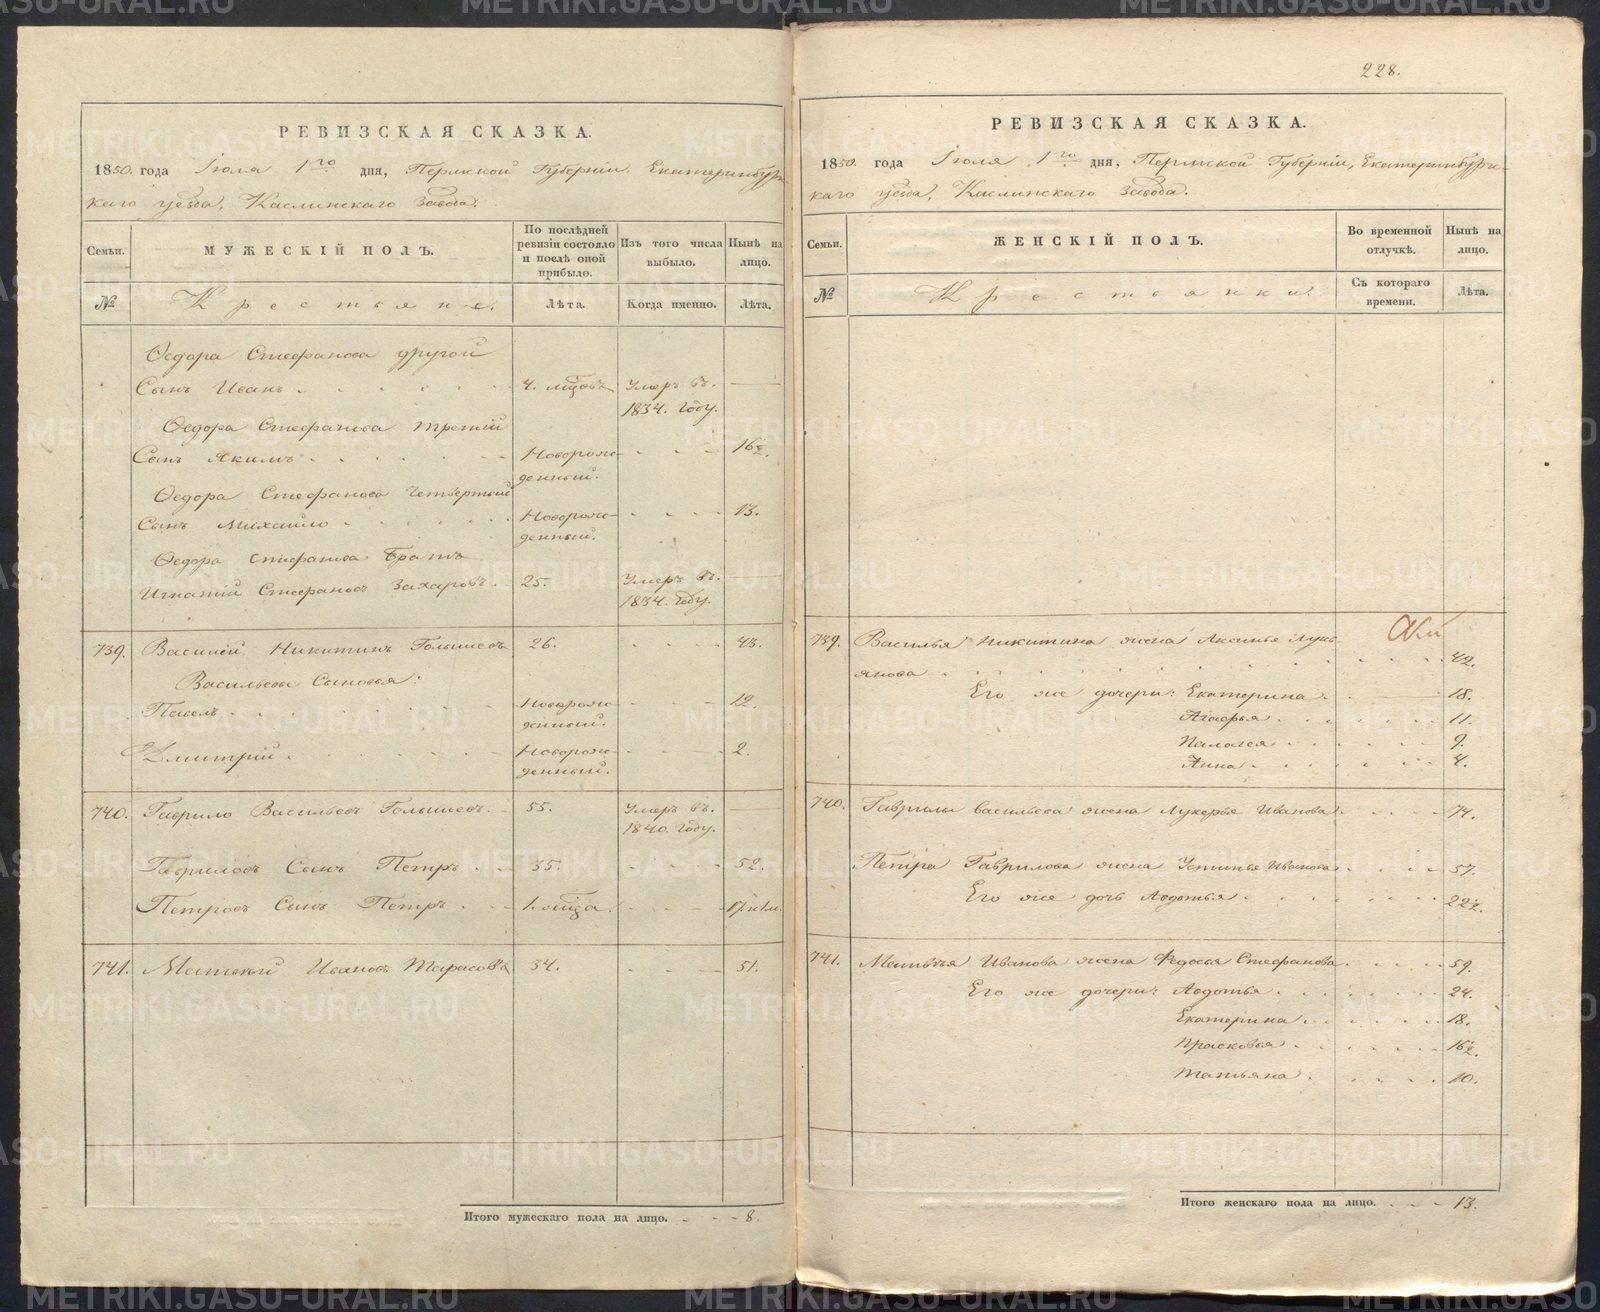 РЕВИЗСКАЯ СКАЗКА.
1850. года Іюля 1го дня, Пермской Губерніи. Екатеринбург-
скаго уезда, Каслинскаго Завода.
Семьи.
МУЖЕСКІЙ ПОЛЪ.
По послѣдней ревизіи состояло и послѣ оной прибыло.
Изъ того числа выбыло.
Нынѣ на лицо.
№
Крестьяне.
Лѣта.
Когда именно.
Лѣта.
Ѳедора Стефанова другой
Сынъ Иванъ 4. Умеръ въ
1834. году.
Ѳедора Стефанова третій
Сынъ Якимъ Новорож- 16½.
денный.
Ѳедора Стефанова Четвертый
Сынъ Михайло Новорож- 13.
денный.
Ѳедора Стефанова Братъ
Игнатій Стефановъ Захаровъ. 25. Умеръ въ.
1834. Году.
739. Василій Никитинъ Голышевъ 26. 43.
Васильевы Сыновья:
Павелъ Новорож- 12.
денный.
Дмитрій Новорож- 2.
денный.
740. Гаврило Васильевъ Голышевъ. 55. Умеръ въ.
1840. году.
Гавриловъ Сынъ Петръ 35. 52.
Петровъ Сынъ Петръ 1. 17. и 1 м.
741. Матвѣй Ивановъ Тарасовъ 34. 51.
Итого мужескаго пола на лицо. 8.
228.
РЕВИЗСКАЯ СКАЗКА.
1850. года Іюля 1го дня, Пермской Губерніи, Екатеринбургс-
каго уезда, Каслинскаго Завода.
Семьи.
ЖЕНСКІЙ ПОЛЪ.
Во временной отлучкѣ.
Нынѣ на лицо.
№
Крестьянки.
Съ котораго времени.
Лѣта.
739. Василья Никитина жена Аксинья Лукь-
янова 42.
Его же дочери: Екатерина 18.
Агафья 11.
Палагея 9.
Анна 4.
740. Гаврилы Васильева жена Лукерья Иванова 74.
Петра Гаврилова жена Устинья Иванова 57.
Его же дочь Авдотья 22½.
741. Матвѣя Иванова жена Ѳедосья Стефанова 59.
Его же дочери: Авдотья 24.
Екатерина 18.
Прасковья 16½.
Татьяна 10.
Итого женскаго пола на лицо. 13.
METRIKI.GASO-URAL.RU